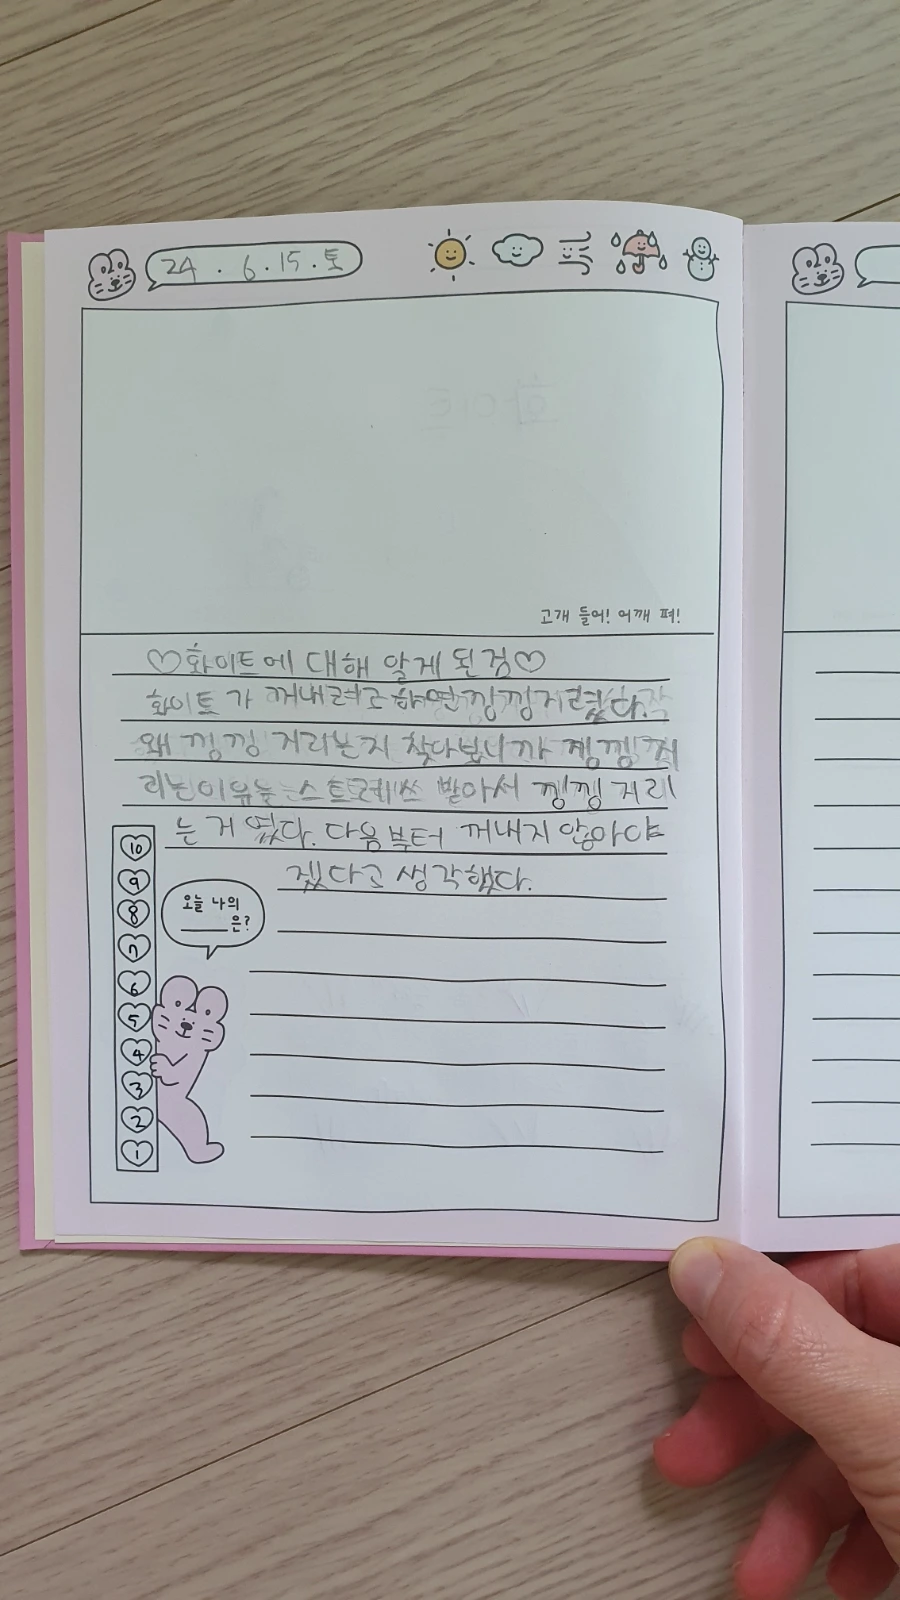 24 . 6 . 15 . 토
고개 들어! 어깨 펴!
♡화이트에 대해 알게 된 점♡
화이트 가 꺼내려고 하면 낑낑거렸다.
왜 낑낑 거리는지 찾아보니까 낑낑거
리는이유는 스트레쓰 받아서 낑낑 거리
는 거 였다. 다음부터 꺼내지 않아야
겠다고 생각했다.
오늘 나의
은?
10
9
8
7
6
5
4
3
2
1